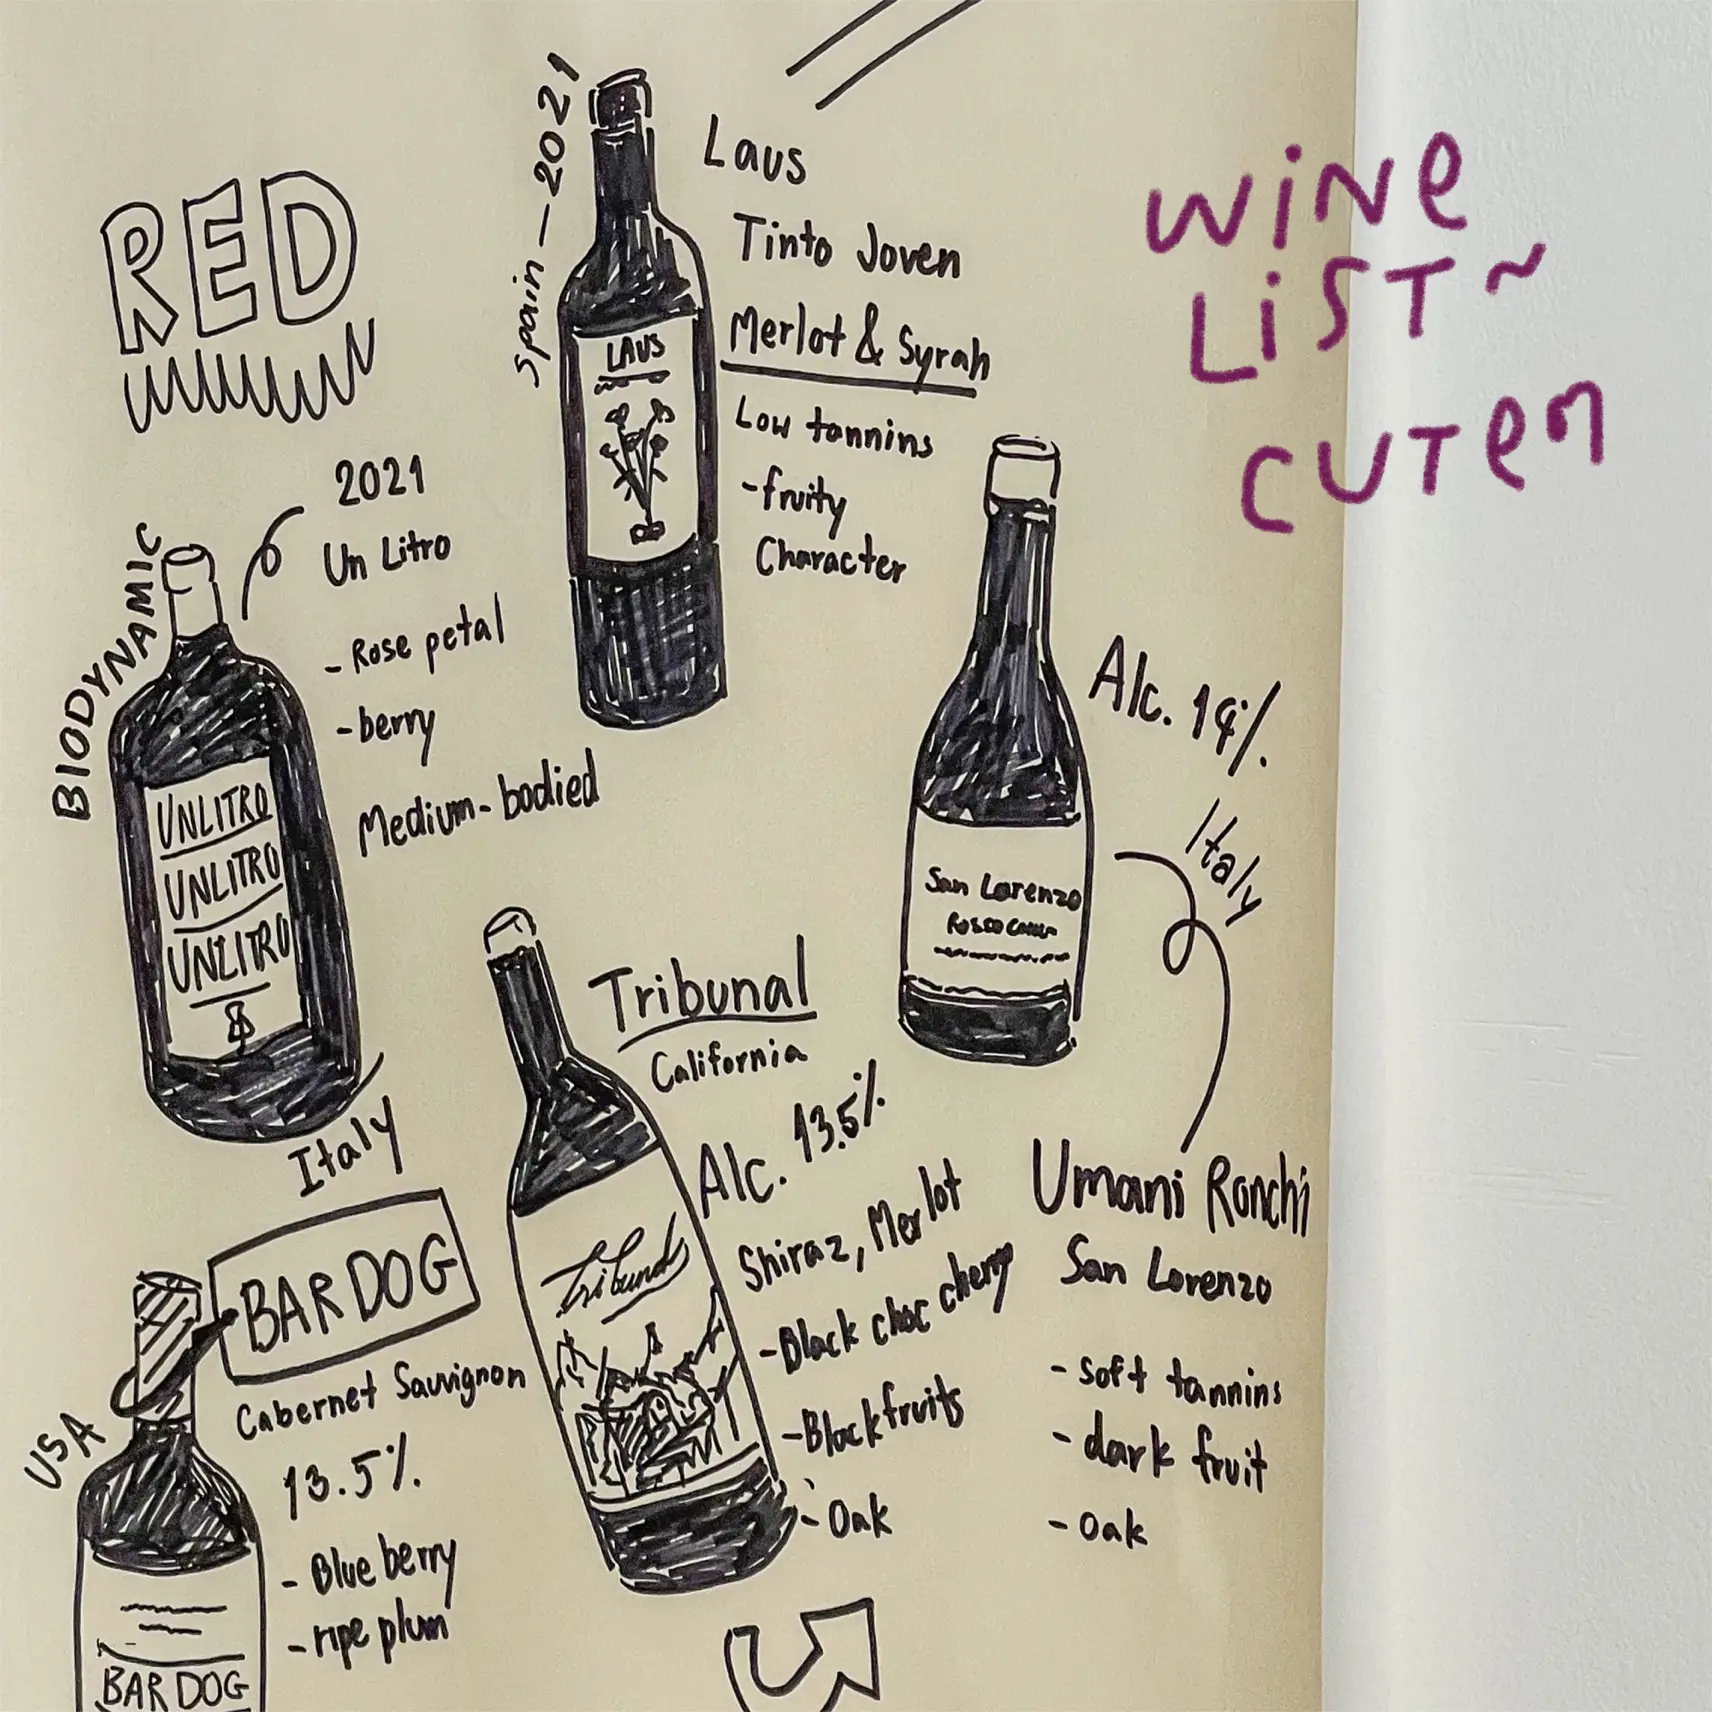 WiNe
LiST~
CUTeM
RED
Spain — 2021
Laus
Tinto Joven
Merlot & Syrah
Low tannins
- fruity
Character
LAUS
BIODYNAMIC
2021
Un Litro
- Rose petal
- berry
Medium-bodied
UNLITRO
UNLITRO
UNLITRO
Italy
Alc. 14%
Italy
San Lorenzo
Umani Ronchi
San Lorenzo
- soft tannins
- dark fruit
- oak
Tribunal
California
Alc. 13.5%
Shiraz, Merlot
- Black choc cherry
- Black fruits
- Oak
Tribunal
BAR DOG
USA
Cabernet Sauvignon
13.5%
- Blue berry
- ripe plum
BAR DOG